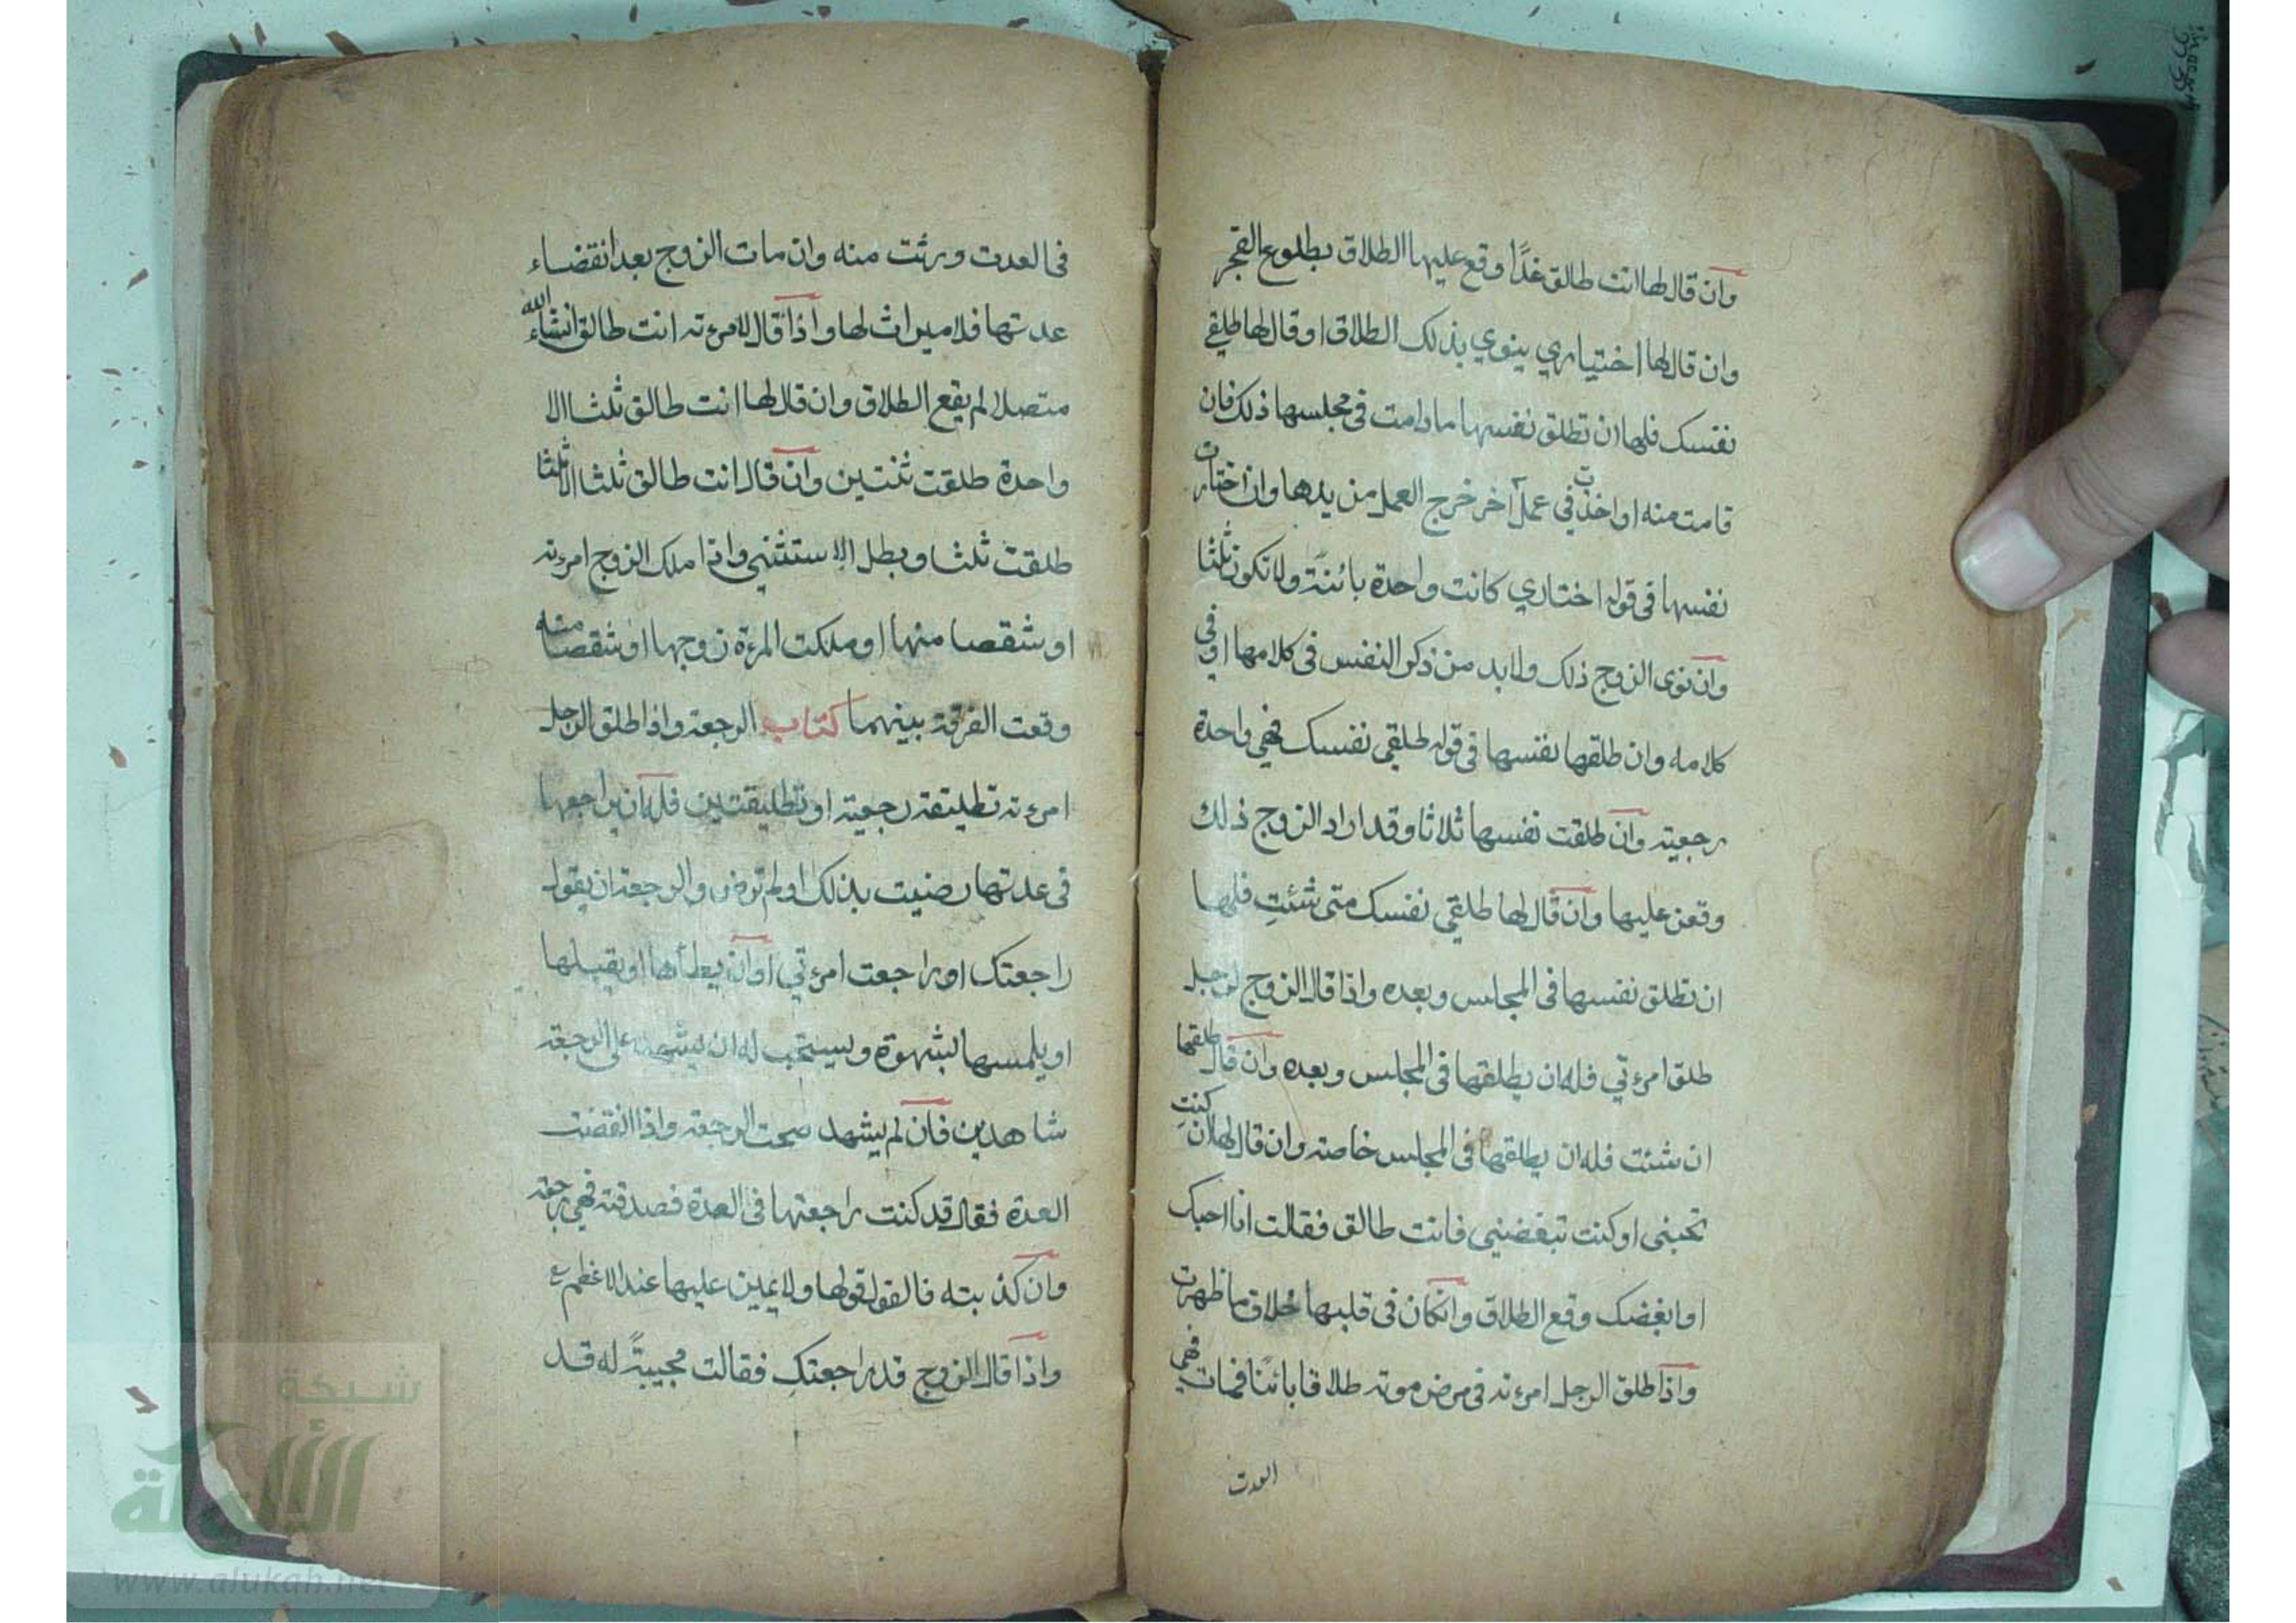 وان قال لها انت طالق غدًا وقع عليها الطلاق بطلوع الفجر
وان قال لها اختياري ينوي بذلك الطلاق او قال لها طلقي
نفسك فلها ان تطلق نفسها ما دامت في مجلسها ذلك فان
قامت منه او اخذت في عمل آخر خرج العمل من يدها وان اختارت
نفسها في قوله اختاري كانت واحدة بائنة ولا تكون ثلثا
وان نوى الزوج ذلك ولا بد من ذكر النفس في كلامها او في
كلامه وان طلقها نفسها في قوله طلقي نفسك فهي واحدة
رجعية وان طلقت نفسها ثلاثا وقد اراد الزوج ذلك
وقعن عليها وان قال لها طلقي نفسك متى شئتِ فلها
ان تطلق نفسها في المجلس وبعده واذا قال الزوج لرجل
طلق امرءتي فله ان يطلقها في المجلس وبعده وان قال طلقها
ان شئت فله ان يطلقها في المجلس خاصة وان قال لها ان كنتِ
تحبني او كنت تبغضيني فانت طالق فقالت انا احبك
او ابغضك وقع الطلاق وانكان في قلبها خلاف ما ظهرت
واذا طلق الرجل امرءته في مرض موته طلاقا بائنًا فمات فهي
العدت
في العدت ورثت منه وان مات الزوج بعد انقضاء
عدتها فلا ميراث لها واذا قال لامرءته انت طالق انشاء الله
متصلا لم يقع الطلاق وان قال لها انت طالق ثلثا الا
واحدة طلقت ثنتين وان قال انت طالق ثلثا الا ثلثا
طلقت ثلثا وبطل الاستثني واذا ملك الزوج امرءته
او شقصا منها او ملكت المرءة زوجها او شقصا منه
وقعت الفرقة بينهما كتاب الرجعة واذا طلق الرجل
امرءته تطليقة رجعية او تطليقتين فله ان يراجعها
في عدتها رضيت بذلك او لم ترض والرجعة ان يقول
راجعتك او راجعت امرءتي او ان يطأها او يقبلها
او يلمسها بشهوة ويستحب له ان يشهد على الرجعة
شاهدين فان لم يشهد صحت الرجعة واذا انقضت
العدة فقال قد كنت راجعتها في العدة فصدقته فهي رجعة
وان كذبته فالقول قولها ولا يمين عليها عند الاعظم ع
واذا قال الزوج قد راجعتكِ فقالت مجيبةً له قد
شبكة
الألوكة
www.alukah.net